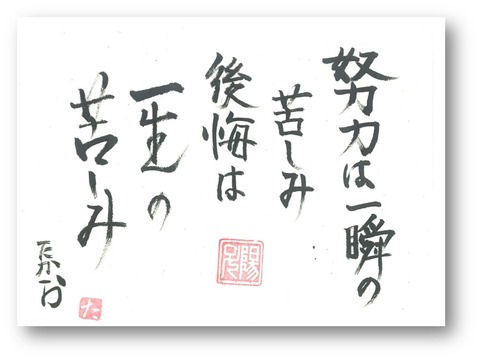 努力は一瞬の
苦しみ
後悔は
一生の
苦しみ
た